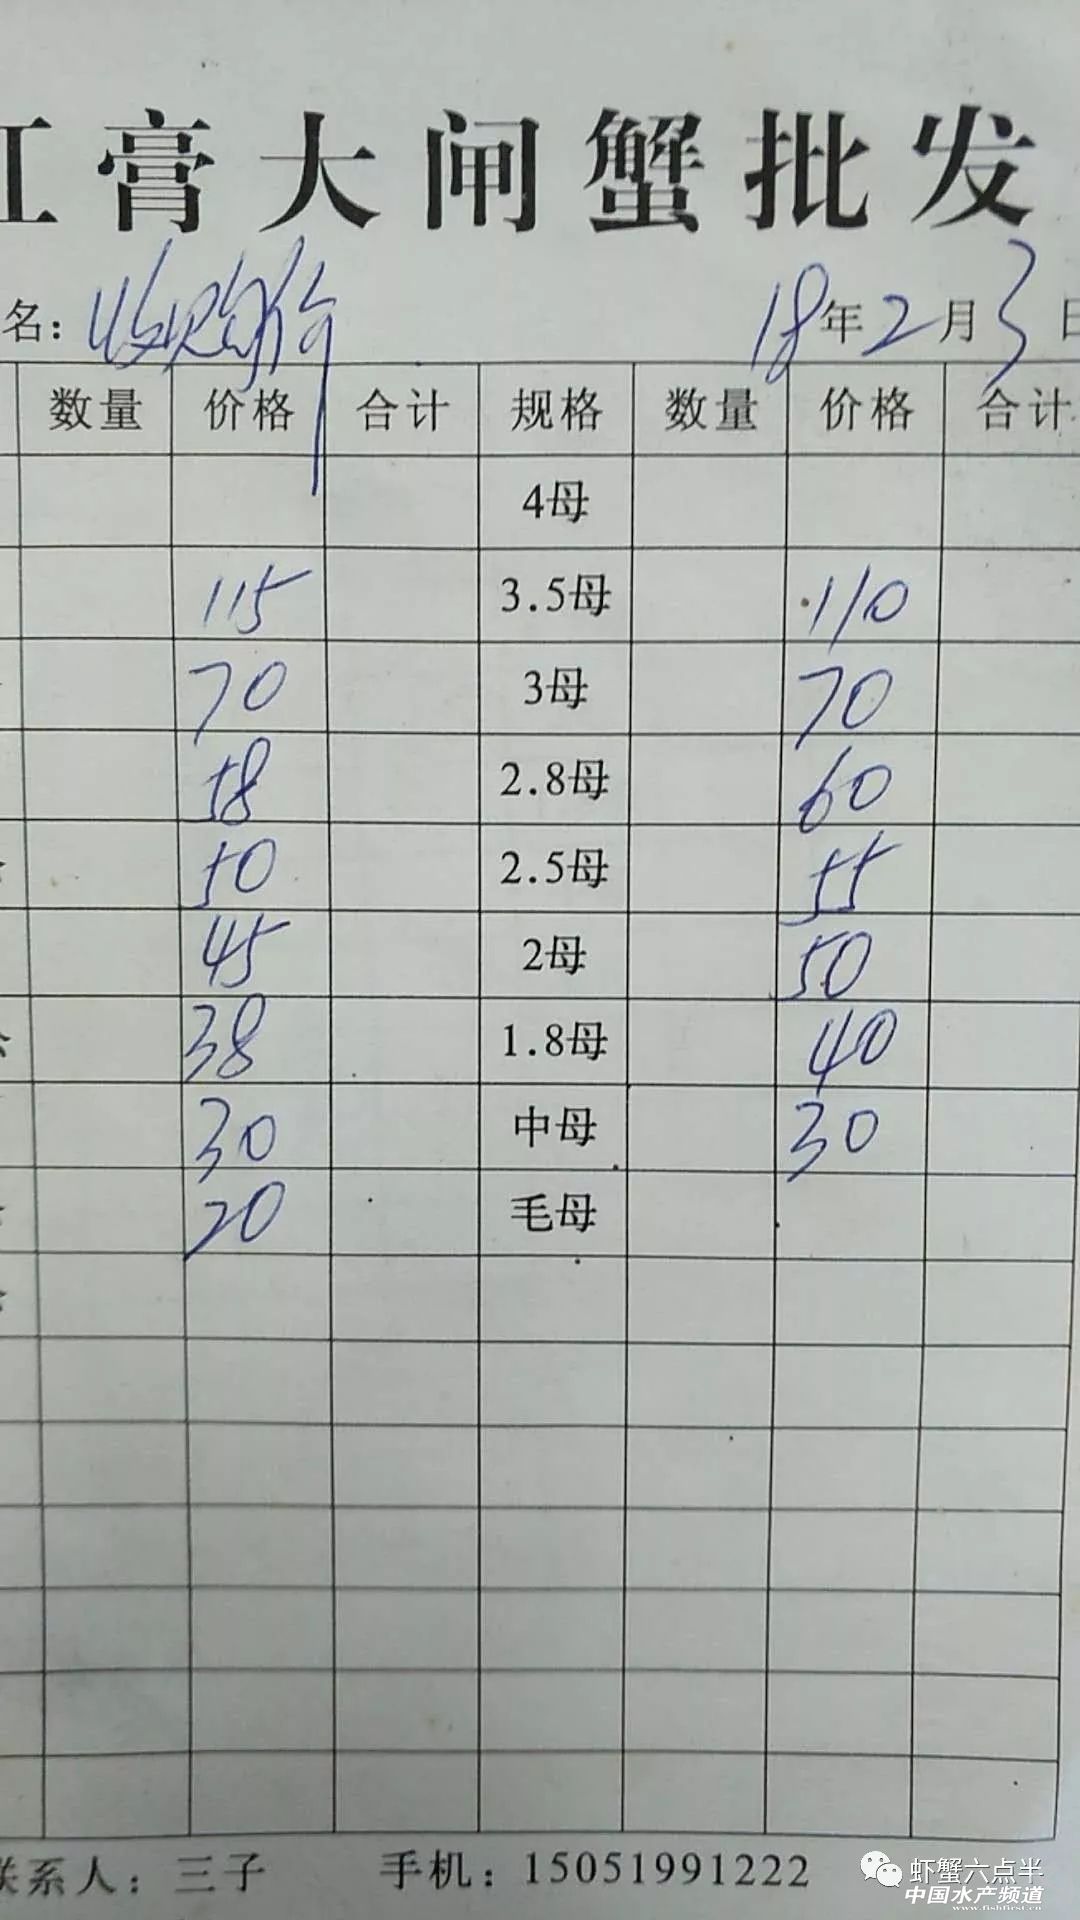 红膏大闸蟹批发
名：收购价 18年2月3日
数量 价格 合计 规格 数量 价格 合计
4母
115 3.5母 110
70 3母 70
58 2.8母 60
50 2.5母 55
45 2母 50
38 1.8母 40
30 中母 30
20 毛母
联系人：三子 手机：15051991222
虾蟹六点半
中国水产频道
www.fishfirst.cn